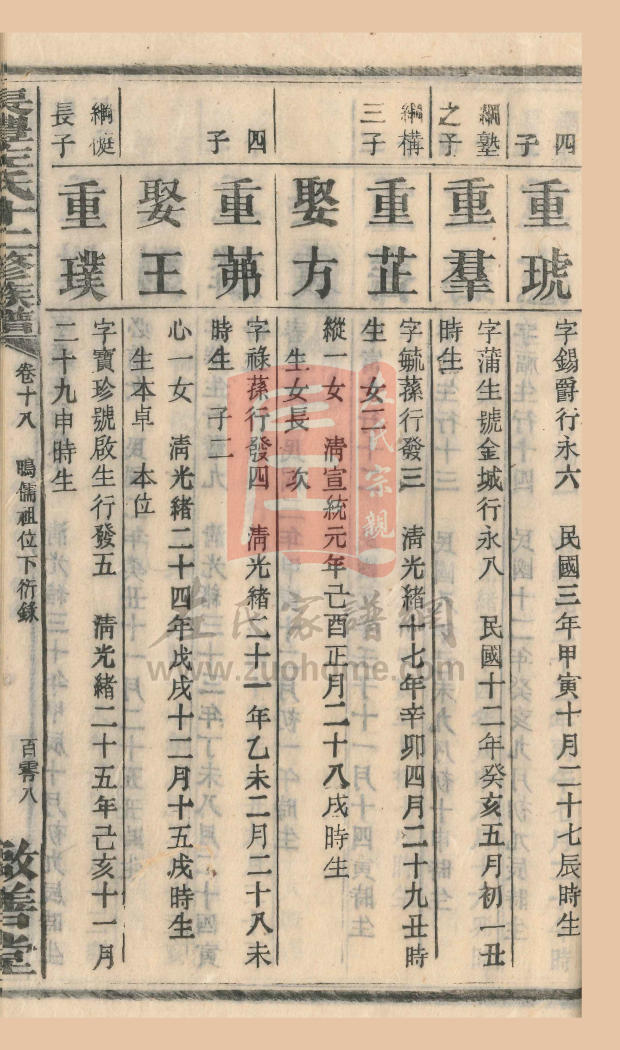 四子
重琥
字錫爵行永六 民國三年甲寅十月二十七辰時生
綱塾之子
重羣
字蒲生號金城行永八 民國十二年癸亥五月初一丑
時生
綱構三子
重芷
字毓蓀行發三 清光緒十七年辛卯四月二十九丑時
生 女三
娶方
縱一女 清宣統元年己酉正月二十八戌時生
生女長 次
四子
重茀
字祿蓀行發四 清光緒二十一年乙未二月二十八未
時生 子二
娶王
心一女 清光緒二十四年戊戌十二月十五戌時生
生本卓 本位
綱侹長子
重璞
字寶珍號啟生行發五 清光緒二十五年己亥十一月
二十九申時生
長豐左氏十二修族譜 卷十八 鳴儒祖位下衍錄 百零八 敬善堂
左氏宗親
左氏家譜網
www.zuohome.com